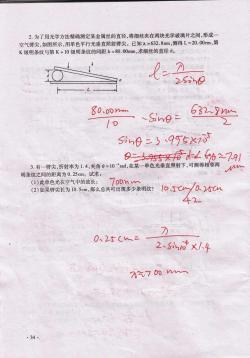 2. 为了用光学方法精确测定某金属丝的直径,将细丝夹在两块光学玻璃片之间,形成一
空气劈尖,如图所示,用单色平行光垂直照射劈尖。已知λ=632.8nm,测得L=20.00cm,第
K级明条纹与第K+10级明条纹的间距Δ=80.00mm,求细丝的直径d。
L
l = λ / 2sinθ
80.00mm / 10 · sinθ = 632.8nm / 2
sinθ = 3.955×10⁻⁵
3. 有一劈尖,折射率为1.4,夹角θ=10⁻⁴rad,在某一单色光垂直照射下,可测得相邻两
明条纹之间的距离为0.25cm。试求:
(1)此单色光在空气中的波长; 700nm
(2)如果劈尖长为10.5cm,那么总共可出现多少条明纹? 10.5cm/0.25cm
42
0.25cm = λ / 2·sin10⁻⁴×1.4
λ=700nm
· 34 ·